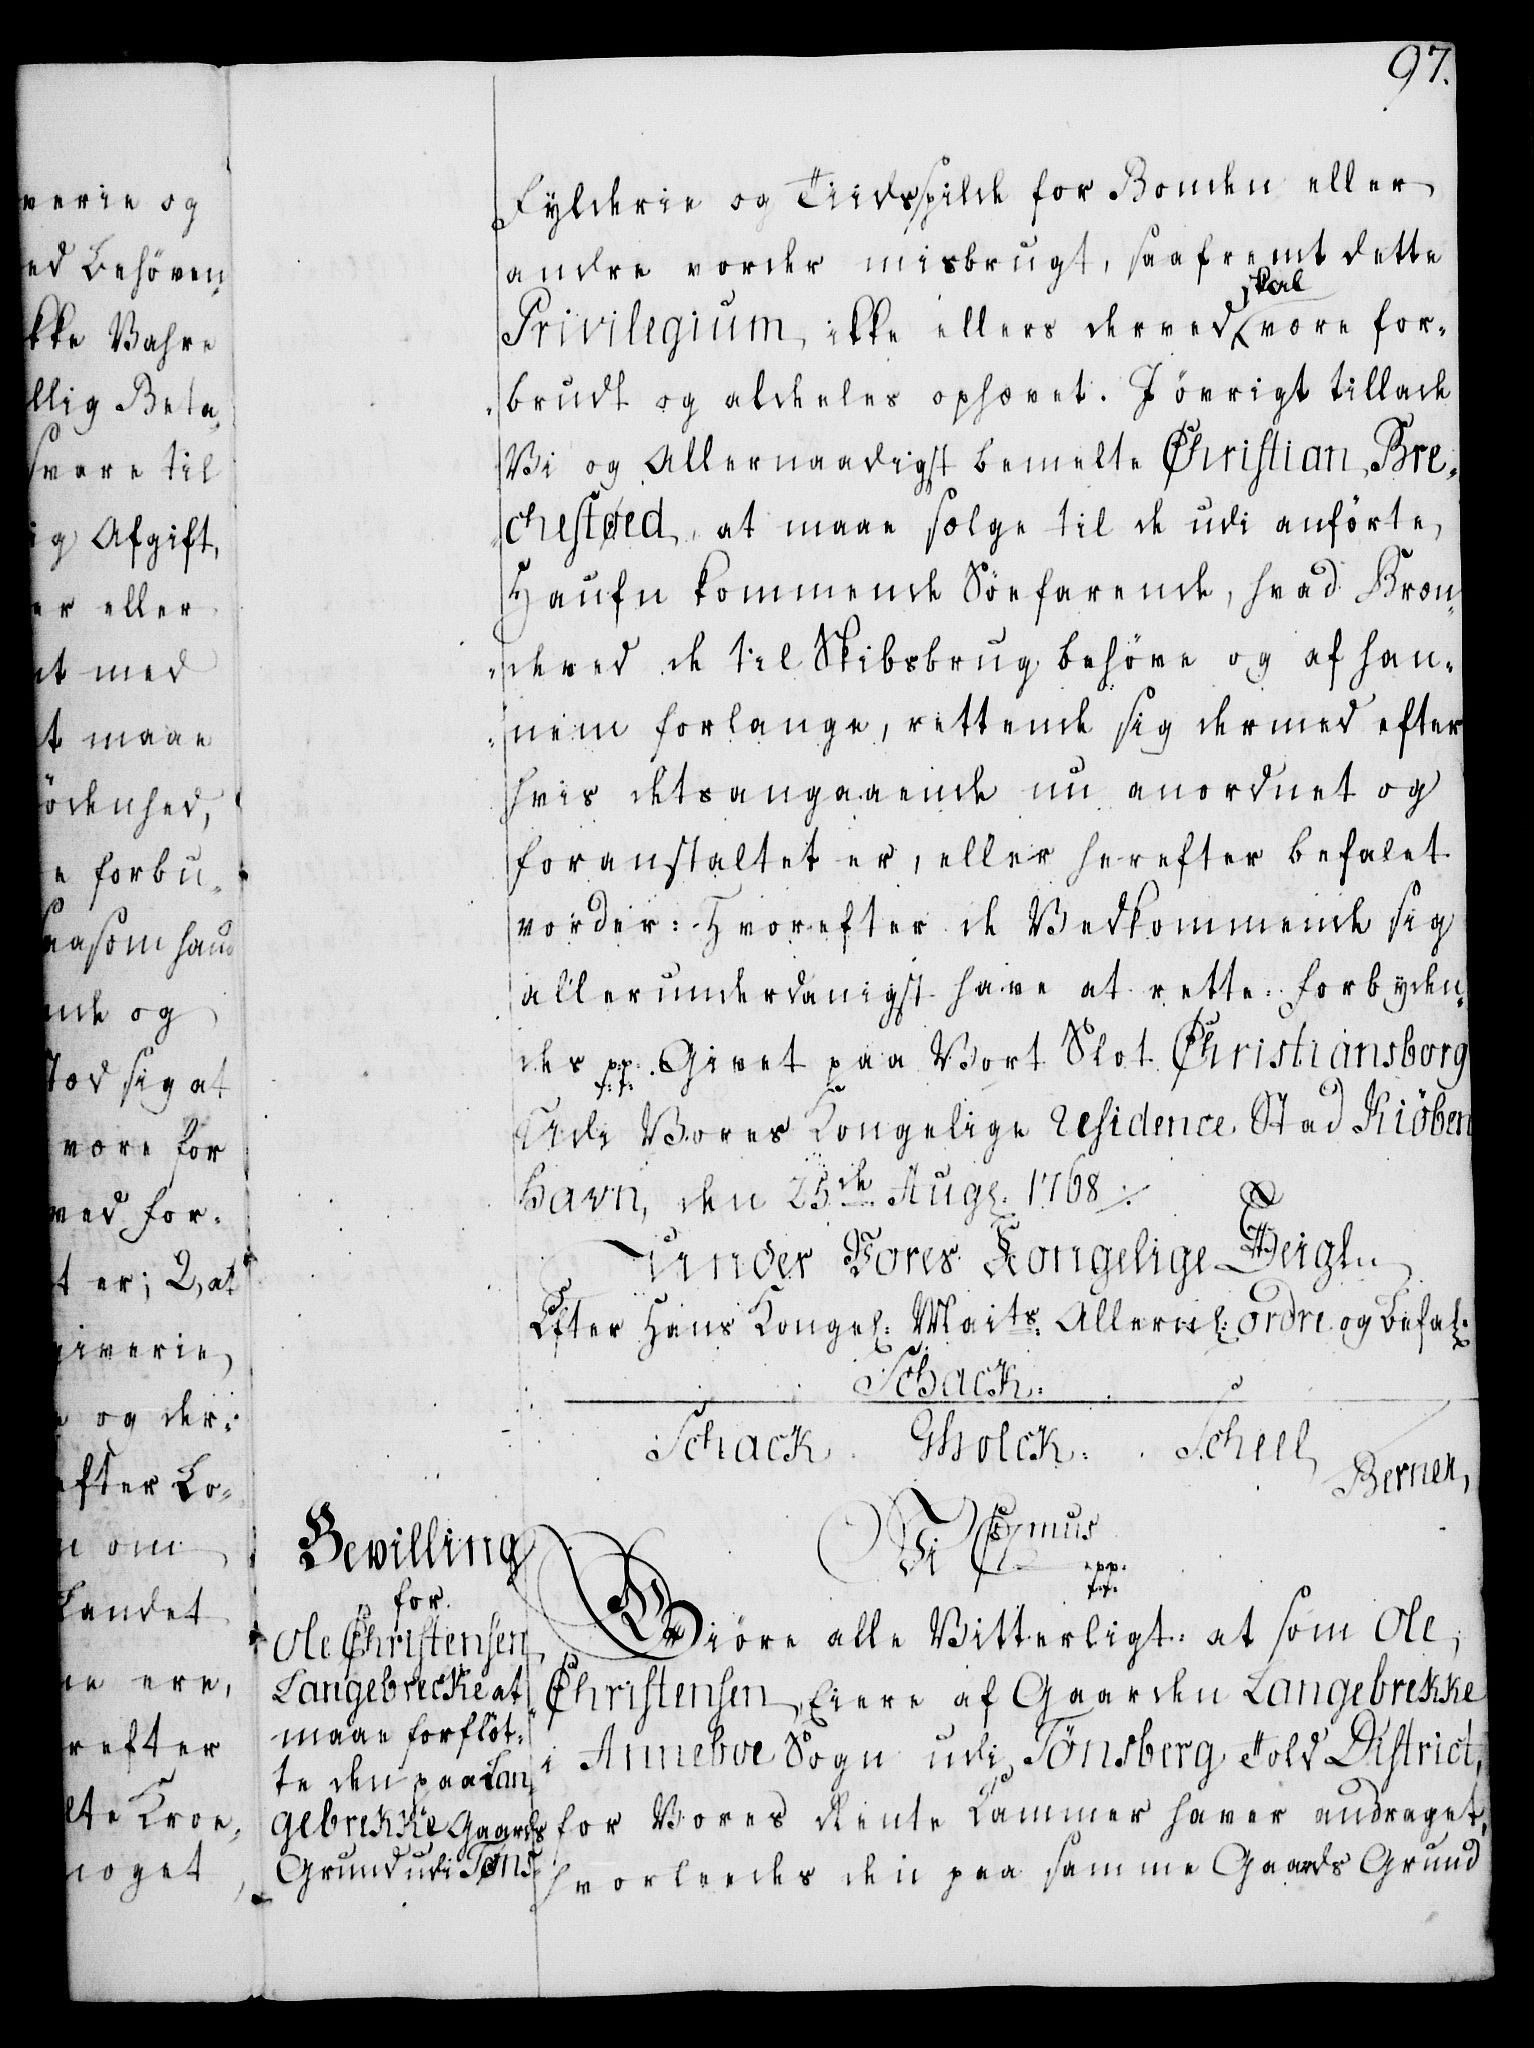 97.
verie og
ed Behöven,
kke Vahre
llig Beta,
svare til
ig Afgift,
er eller
nt med
t maae
ödenhed,
e forbu,
aasom hand
nde og
stod sig at
være for
ved for-
t er; 2, at
giverie,
og der:
efter Lo-
n om
Landet
ne ere,
refter
lte Kroe,
noget
Fylderie og Tiidsspilde for Bonden eller
andre vorder misbrugt, saafremt dette
Privilegium ikke ellers derved skal være for-
brudt og aldeeles ophævet. I övrigt tillade
Vi og Allernaadigst bemelte Christian Bre,
chestøed, at maae sælge til de udi anförte
Haufn kommende Söefarende, hvad Bræn,
deved de til Skibsbrug behöve og af han-
nem forlange, rettende sig dermed efter
hvis detsangaaende nu anordnet og
foranstaltet er, eller herefter befalet
vorder: Hvorefter de Vedkommende sig
allerunderdanigst have at rette. Forbyden,
des p.p. t.t. Givet paa Vort Slot Christiansborg
Udi Vores Kongelige Residence Stad Kiöben
havn, den 25de Aug: 1768 ./.
under Vores Kongelige Zeigl..
Efter Hans Kongel: Maits: Allern: ordre og befal:
Schack:
Schack Gholck: Scheel,
Berner,
Bewilling
for
Ole Christensen
Langebrecke at
maae forflöt:
te den paa Lan
gebrekke Gaards
Grund udi Tøns
Vi C 7mus
p.p. t.t.
Giöre alle Vitterligt: at som Ole,
Christensen, Eiere af Gaarden Langebrekke
i Anneboe Sogn udi Tönsberg Told District,
for Vores Rente Kammer haver andraget,
hvorleedes den paa samme Gaards Grund